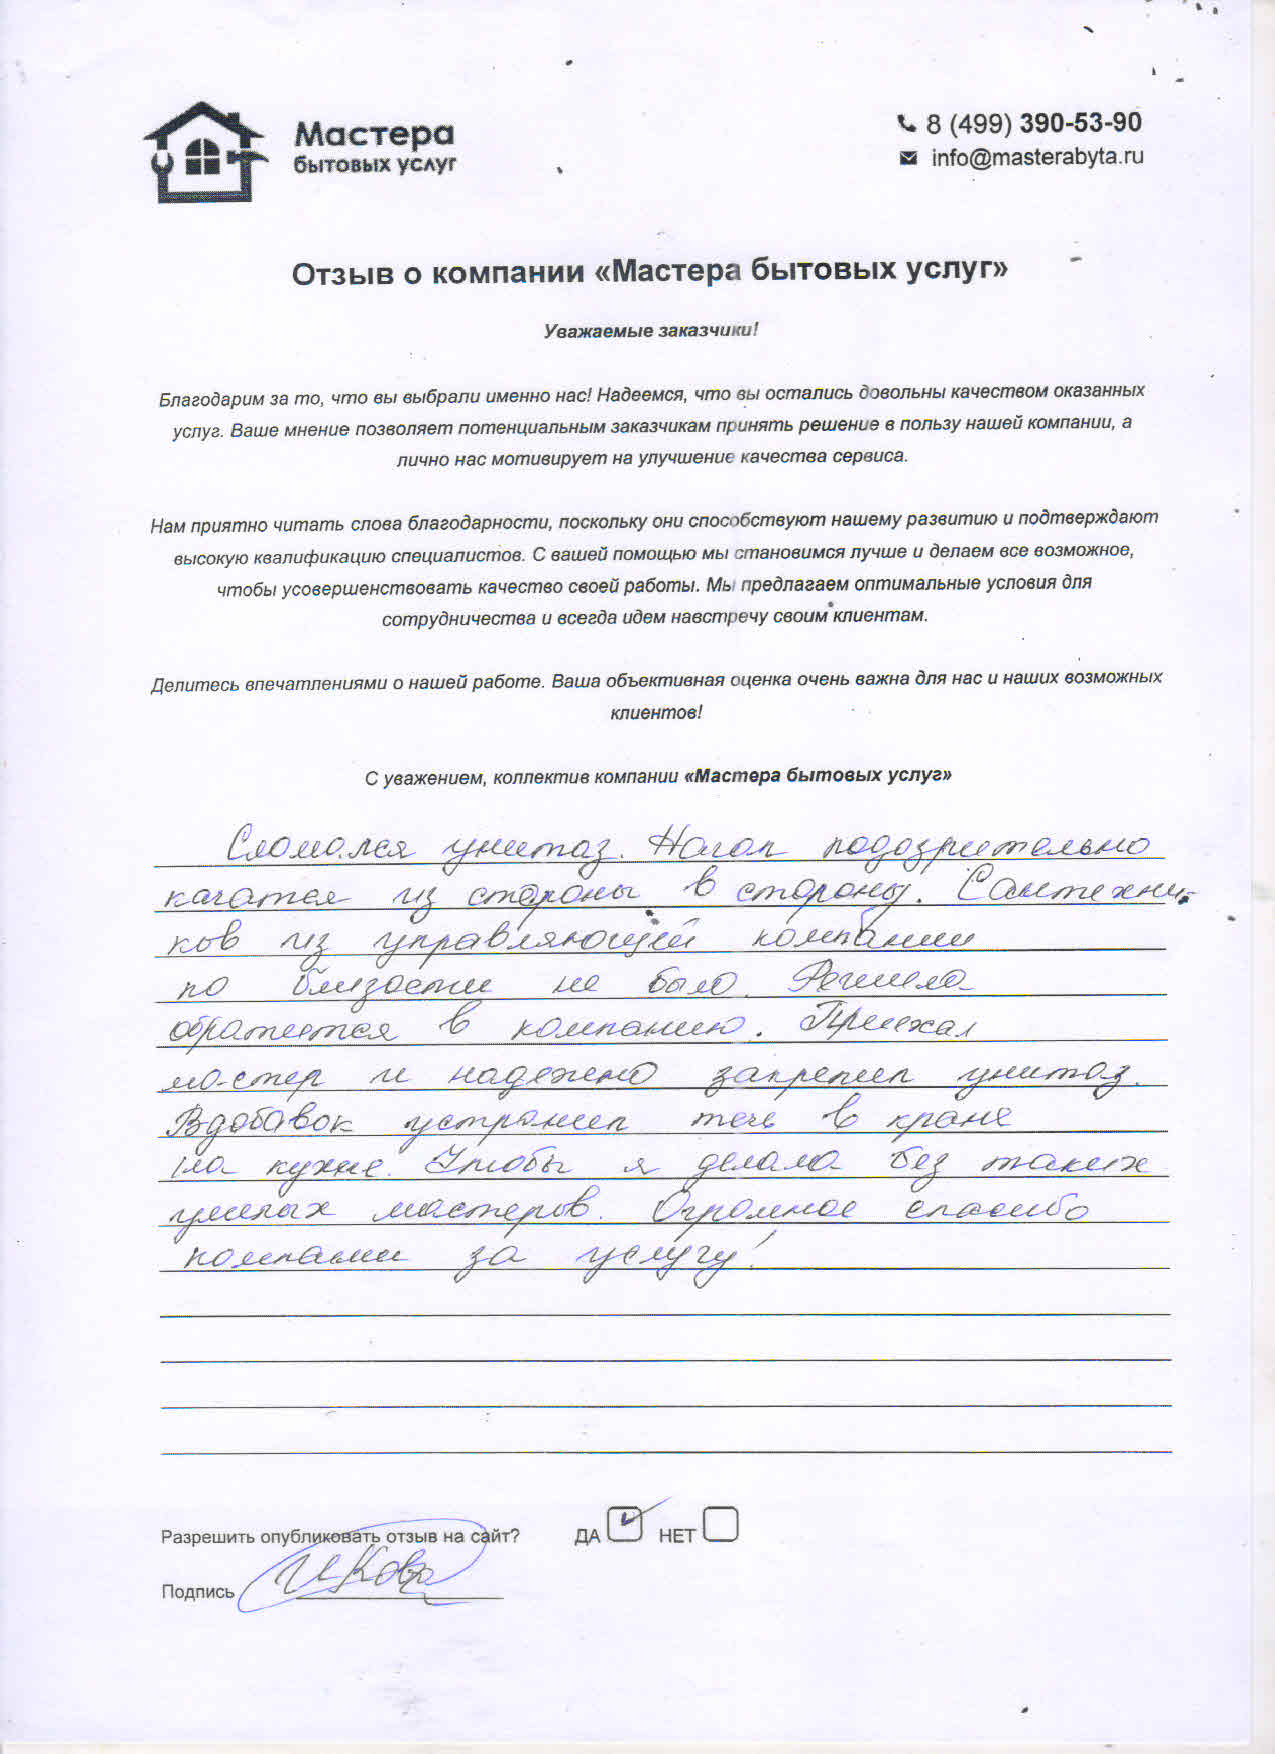 Мастера
бытовых услуг
8 (499) 390-53-90
info@masterabyta.ru
Отзыв о компании «Мастера бытовых услуг»
Уважаемые заказчики!
Благодарим за то, что вы выбрали именно нас! Надеемся, что вы остались довольны качеством оказанных
услуг. Ваше мнение позволяет потенциальным заказчикам принять решение в пользу нашей компании, а
лично нас мотивирует на улучшение качества сервиса.
Нам приятно читать слова благодарности, поскольку они способствуют нашему развитию и подтверждают
высокую квалификацию специалистов. С вашей помощью мы становимся лучше и делаем все возможное,
чтобы усовершенствовать качество своей работы. Мы предлагаем оптимальные условия для
сотрудничества и всегда идем навстречу своим клиентам.
Делитесь впечатлениями о нашей работе. Ваша объективная оценка очень важна для нас и наших возможных
клиентов!
С уважением, коллектив компании «Мастера бытовых услуг»
Сломался унитаз. Начал подозрительно
качатся из стороны в сторону. Сантехни-
ков из управляющей компании
по близости не было. Решила
обратится в компанию. Приехал
мастер и надежно закрепил унитаз.
Вдобавок устранил течь в кране
на кухне. Чтобы я делала без таких
умелых мастеров. Огромное спасибо
компании за услугу!
Разрешить опубликовать отзыв на сайт? ДА НЕТ
Подпись